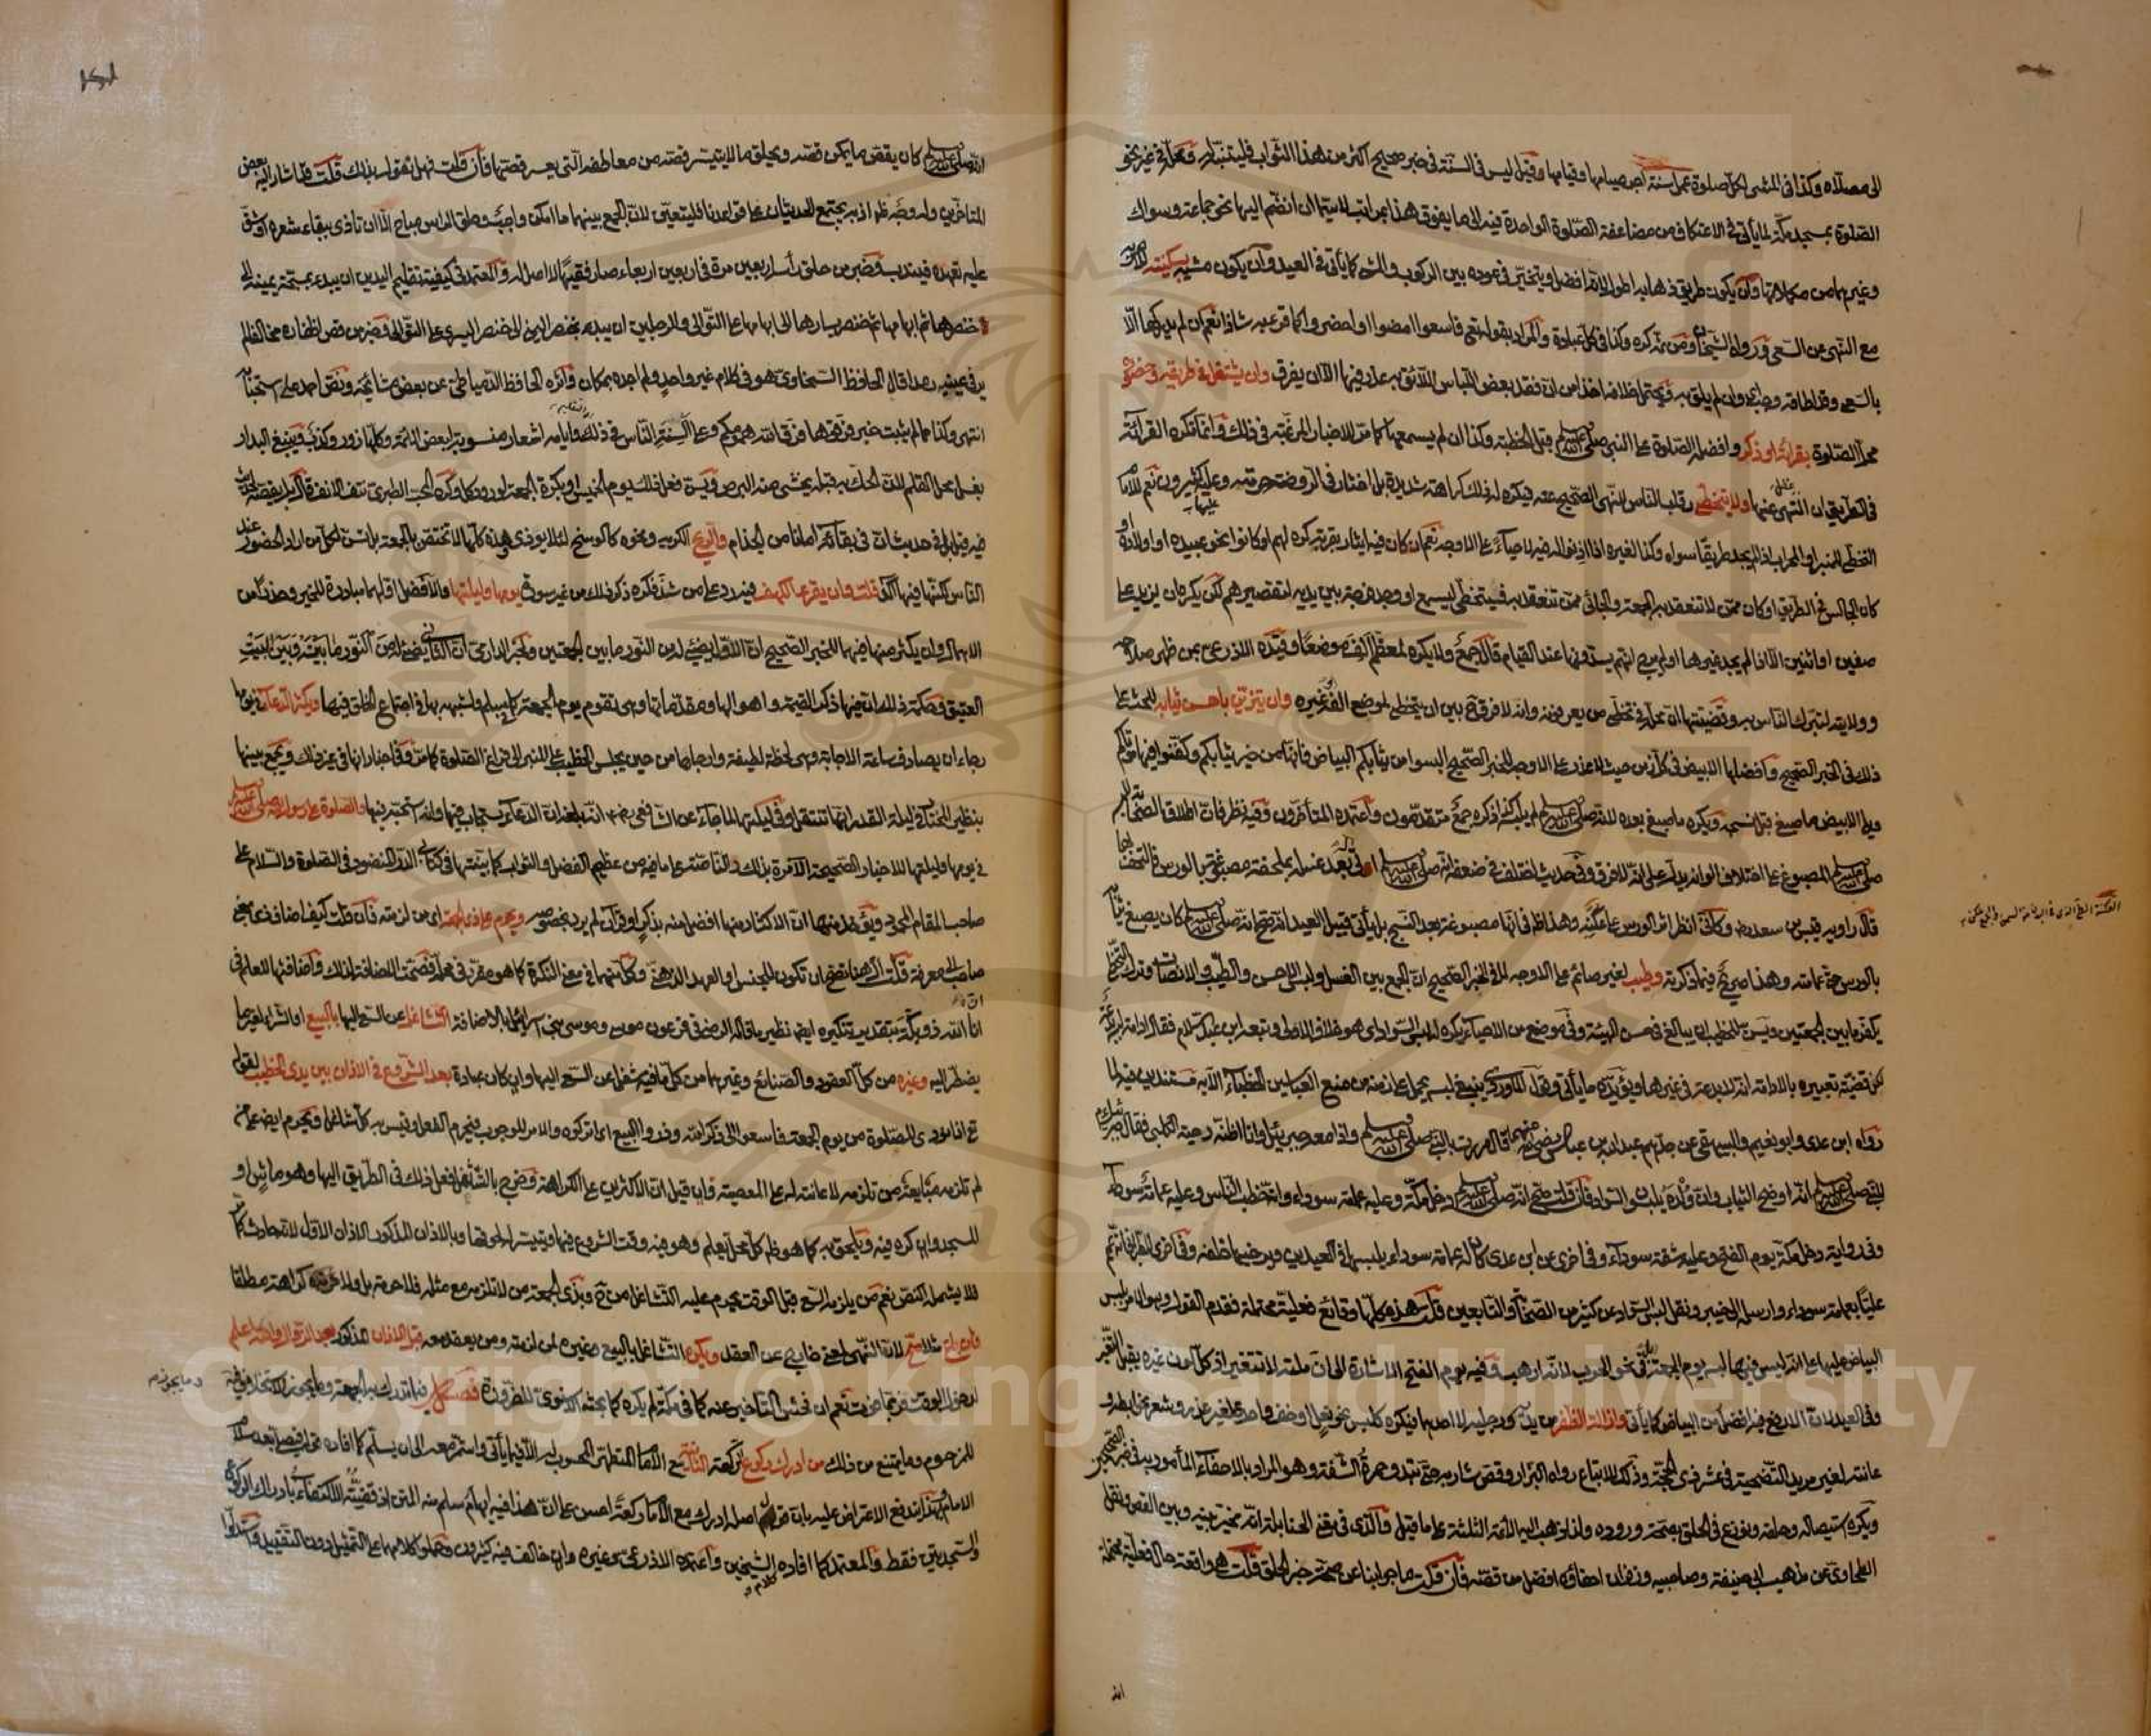 الى مصلاه وكذا في المشي لكل صلوة عمل سنة اجر صيامها وقيامها وقيل ليس في السنة في خبر صحيح اكثر من هذا الثواب فليتنبه له ومحله في غير نحو
الصلوة بمسجد مكة لما يأتي في الاعتكاف من مضاعفة الصلوة الواحدة فيه الى ما يفوق هذا بمراتب لاسيما ان انضم اليها نحو جماعة وسواك
وغيرهما من مكملاتها وأن يكون طريق ذهابه اطول لانه افضل ويتخير في عوده بين الركوب والمشي كما يأتي في العيد وأن يكون مشيه بسكينة للامر به
مع النهي عن السعي ورواه الشيخان ومن ثم كره وكذا في كل عبادة والمراد بقوله تعالى فاسعوا امضوا او احضروا كما قرئ به شاذا نعم ان لم يدركها الا
بالسعي وقد اطاقه وجب وان لم يلق به ويحتمل خلافه اخذا من ان فقد بعض اللباس اللائق به عذر فيها الا ان يفرق وان يشتغل في طريقه وحضوره
محل الصلوة بقرائة او ذكر وافضله الصلوة على النبي صلى الله عليه وسلم قبل الخطبة وكذا ان لم يسمعها كما مر للاخبار المرغبة في ذلك وانما تكره القرائة
في الطريق ان التهى عنها ولا يتخطى رقاب الناس للنهي الصحيح عنه فيكره له ذلك كراهة شديدة بل اختار في الروضة حرمته وعليه كثيرون نعم للامام
التخطي للمنبر او المحراب اذا لم يجد طريقا سواه وكذا لغيره اذا اذنوا له فيه لا حياء على الاوجه نعم ان كان فيه ايثار بقربة كره لهم او كانوا نحو عبيده او اولاده او
كان الجالس في الطريق او كان ممن لا تنعقد به الجمعة والجائي ممن تنعقد به فيتخطى ليسمع او وجد فرجة بين يديه لتقصيرهم لكن يكره ان يزيد على
صفين او اثنين الا اذا لم يجد غيرها او لم يرج انهم يسدونها عند القيام قال جمع ولا يكره لمعظم الف موضعا وقيده الاذرعي بمن ظهر صلاحه
وولايته لتبرك الناس به وقضيته ان محله في تخطي من يعرفونه وانه لا فرق ح بين ان يتخطى لموضع الفه او غيره وان يتزين باحسن ثيابه للحث على
ذلك في الخبر الصحيح وافضلها الابيض في كل زمن حيث لا عذر على الاوجه للخبر الصحيح البسوا من ثيابكم البياض فانها من خير ثيابكم وكفنوا فيها موتاكم
ويلي الابيض ما صبغ قبل نسجه ويكره ما صبغ بعده للنبي صلى الله عليه وسلم لم يلبسه كذا ذكره جمع متقدمون واعتمده المتأخرون وفيه نظر فان اطلاق الصحابة لبسه
صلى الله عليه وسلم المصبوغ على اختلاف الوانه يدل على انه لا فرق وفي حديث اختلف في ضعفه انه صلى الله عليه وسلم اتى بعد غسله بملحفة مصبوغة بالورس فالتحف بها
قال راويه قيس بن سعد رضي وكأني انظر اثر الورس على عكنه وهذا ظ في انها مصبوغة بعد النسج بل يأتي قبيل العيد انه صح انه صلى الله عليه وسلم كان يصبغ ثيابه
بالورس حتى عمامته وهذا صريح فيما ذكرته وطيب لغير صائم على الاوجه لما في الخبر الصحيح ان الجمع بين الغسل ولبس الاحسن والطيب والانصات وترك التخطي
يكفر ما بين الجمعتين ويسن للخطيب ان يبالغ في حسن الهيئة وفي موضع من الاحياء يكره له لبس السواد اي هو خلاف الاولى وتبعه ابن عبد السلام فقال ادامة لبسه بدعة
لكن قضية تعبيره بالادامة انه لا بدعة في غيرها ويؤيده ما يأتي وقول الماوردي ينبغي لبسه يحمل على زمنه من منع العباسيين الخطباء الا به مستندين فيه لما
رواه ابن عدي وابو نعيم والبيهقي عن جدهم عبد الله بن عباس رضي الله عنهما قال مررت بالنبي صلى الله عليه وسلم واذا معه جبرئيل وانا اظنه دحية الكلبي فقال جبرئيل
للنبي صلى الله عليه وسلم انه اوضح الثياب وان ولده يلبسون السواد فان قلت صح انه صلى الله عليه وسلم دخل مكة وعليه عمامة سوداء وانه خطب الناس وعليه عمامة سوداء
وفي رواية دخل مكة يوم الفتح وعليه شقة سوداء وفي اخرى عن ابن عدي كان له عمامة سوداء يلبسها في العيدين ويرخيها خلفه وفي اخرى للطبراني انه عمم
عليا بعمامة سوداء وارسله الى خيبر ونقل لبس السواد عن كثير من الصحابة والتابعين قلت هذه كلها وقائع فعلية محتملة فقدم القول وهو الامر بلبس
البياض عليها على انه ليس فيها لبسه يوم الجمعة بل في نحو الحرب لانه ارهب وفيه يوم الفتح الاشارة الى ان ملته لا تتغير اذ كل لون غيره يقبل التغير
وفي العيد لان الارفع فيه افضل من البياض كما يأتي وازالة الظفر من يديه ورجليه لا احدهما فيكره كلبس نحو نعل او خف واحد لغير عذر وشعر نحو ابطه و
عانته لغير مريد التضحية في عشر ذي الحجة وذلك للاتباع رواه البزار وقص شاربه حتى تبدو حمرة الشفة وهو المراد بالاحفاء المأمور به في خبر الصحيحين
ويكره استيصاله وحلقه ونوزع في الحلق بصحة وروده ولذا ذهب اليه الائمة الثلثة على ما قيل والذي في مغني الحنابلة انه مخير بينه وبين القص ونقل
الطحاوي عن مذهب ابي حنيفة وصاحبيه وزفر ان احفاؤه افضل من قصه فان قلت ما جوابنا عن صحة خبر الحلق قلت هو واقعة حال فعلية محتملة
الله
انه صلى الله عليه وسلم كان يقص ما يمكن قصه ويحلق ما لا يتيسر قصه من معاطفه التي يعسر قصها فان قلت فهل نقول بذلك قلت قد اشار اليه بعض
المتاخرين وله وجه ظ اذ به يجتمع الحديثان على قواعدنا فليتعين لان الجمع بينهما ما امكن واجب وحلق الراس مباح الا ان تاذى ببقاء شعره او شق
عليه تعهده فيندب وخبر من حلق رأسه اربعين مرة في اربعين اربعاء صار فقيها لا اصل له والمعتمد في كيفية تقليم اليدين ان يبدء بمسبحة يمينه الى
خنصرها ثم ابهامها ثم خنصر يسارها الى ابهامها على التوالي والرجلين ان يبدء بخنصر اليمنى الى خنصر اليسرى على التوالي وخبر من قص اظفاره مخالفا لم
ير في عينيه رمدا قال الحافظ السخاوي هو في كلام غير واحد ولم اجده بمكان واثره الحافظ الدمياطي عن بعض مشائخه ونص احمد على استحبابه
انتهى وكذا مما لم يثبت خبر فرقوها فرق الله همومكم وعلى السنة الناس في ذلك وايامه اشعار منسوبة لبعض الائمة وكلها زور وكذب وينبغي البدار
بغسل محل القلم لان الحك به قبله يخشى منه البرص ويسن فعل ذلك يوم الخميس او بكرة الجمعة لورود كل وكره المحب الطبري نتف الانف قال بل يقصه لحديث
فيه قيل بل في حديث ان في بقائه امانا من الجذام والريح الكريه ونحوه كالوسخ لئلا يؤذي وهذه كلها لا تختص بالجمعة بل تسن لكل من اراد الحضور عند
الناس لكنها فيها آكد قلت وان يقرء الكهف فيه رد على من شذ فكره ذكر ذلك من غير سورة يومها وليلتها والافضل اولهما مبادرة للخير وحذرا من
الاهمال وان يكثر منها فيهما للخبر الصحيح ان الاول يضئ له من النور ما بين الجمعتين ولخبر الدارمي ان الثاني يضئ له من النور ما بينه وبين البيت
العتيق وحكمة ذلك ان فيها ذكر القيمة واهوالها ومقدماتها وهي تقوم يوم الجمعة كما في مسلم ولشبهه بها في اجتماع الخلق فيها ويكثر الدعاء في يومها
رجاء ان يصادف ساعة الاجابة وهي لحظة لطيفة وارجاها من حين يجلس الخطيب على المنبر الى فراغ الصلوة كما مر وفي اخبار انها في غير ذلك ويجمع بينها
بنظير المختار في ليلة القدر انها تنتقل وفي ليلتها لما جاء عن الشافعي رضي الله انه بلغه ان الدعاء يستجاب فيها وانه استحبه فيها والصلوة على رسول الله صلى الله عليه وسلم
في يومها وليلتها للاخبار الصحيحة الآمرة بذلك والناصة على ما فيه من عظيم الفضل والثواب كما بينتها في كتابي الدر المنضود في الصلوة والسلام على
صاحب المقام المحمود ويؤخذ منها ان الاكثار منها افضل منه بذكر او قرآن لم يرد بخصوصه ويحرم على ذي الجمعة اي من لزمته فان قلت كيف اضاف ذي بمعنى
صاحب الى معرفة قلت ال هنا تصح ان تكون للجنس او للعهد الذهني وكل منهما في معنى النكرة كما هو مقرر في محله فصحت الاضافة لذلك واضافتها للعلم في
انا الله ذو بكة بتقدير تنكيره ايضا نظير ما قاله الرضي في فرعون موسى وموسى بني اسرائيل بالاضافة التشاغل عن السعي اليها بالبيع او الشراء لغير ما
يضطر اليه وغيره من كل العقود والصنائع وغيرهما من كل ما فيه شغل عن السعي اليها وان كان عبادة بعد الشروع في الاذان بين يدي الخطيب لقوله
تع اذا نودي للصلوة من يوم الجمعة فاسعوا الى ذكر الله وذروا البيع اي اتركوه والامر للوجوب فيحرم الفعل وقيس به كل شاغل ويحرم ايضا على من
لم تلزمه مبايعة من تلزمه لاعانته له على المعصية وان قيل ان الاكثرين على الكراهة وخرج بالتشاغل فعل ذلك في الطريق اليها وهو ماش او
المسجد وان كره فيه ويلحق به كما هو ظ كل محل يعلم وهو فيه وقت الشروع فيها ويتيسر له لحوقها وبالاذان المذكور الاذان الاول لانه حادث كما مر
فلا يشمله النص نعم من يلزمه السعي قبل الوقت يحرم عليه التشاغل من ح وبذي الجمعة من لا تلزمه مع مثله فلا حرمة بل ولا كراهة مطلقا
فان باع مثلا صح لان النهي لمعنى خارج عن العقد ويكره التشاغل بالبيع وغيره لمن لزمته ومن يعقد معه قبل الاذان المذكور بعد الزوال والله اعلم
لدخول الوقت فربما فوت نعم ان فحش التاخير عنه كما في مكة لم يكره كما بحثه الاسنوي للضرورة فصل فيما تدرك به الجمعة وما يجوز الاستخلاف فيه
للمزحوم وما يمتنع من ذلك من ادرك ركوع الركعة الثانية مع الامام المتطهر المحسوب له الآتي فيما يأتي واستمر معه الى ان يسلم كما افاده قوله فيصلي بعد سلام
الامام وبهذا اندفع الاعتراض عليه بان قول اصله ادرك مع الامام ركعة احسن على ان هذا فيه ابهام سلم منه المتن اذ قضيته الاكتفاء بادراك الركوع
والسجدتين فقط والمعتمد كما افاده كلام الشيخين واعتمده الاذرعي وغيره وان خالف فيه كثيرون وحملوا كلامهما على التمثيل دون التقييد واستدلوا